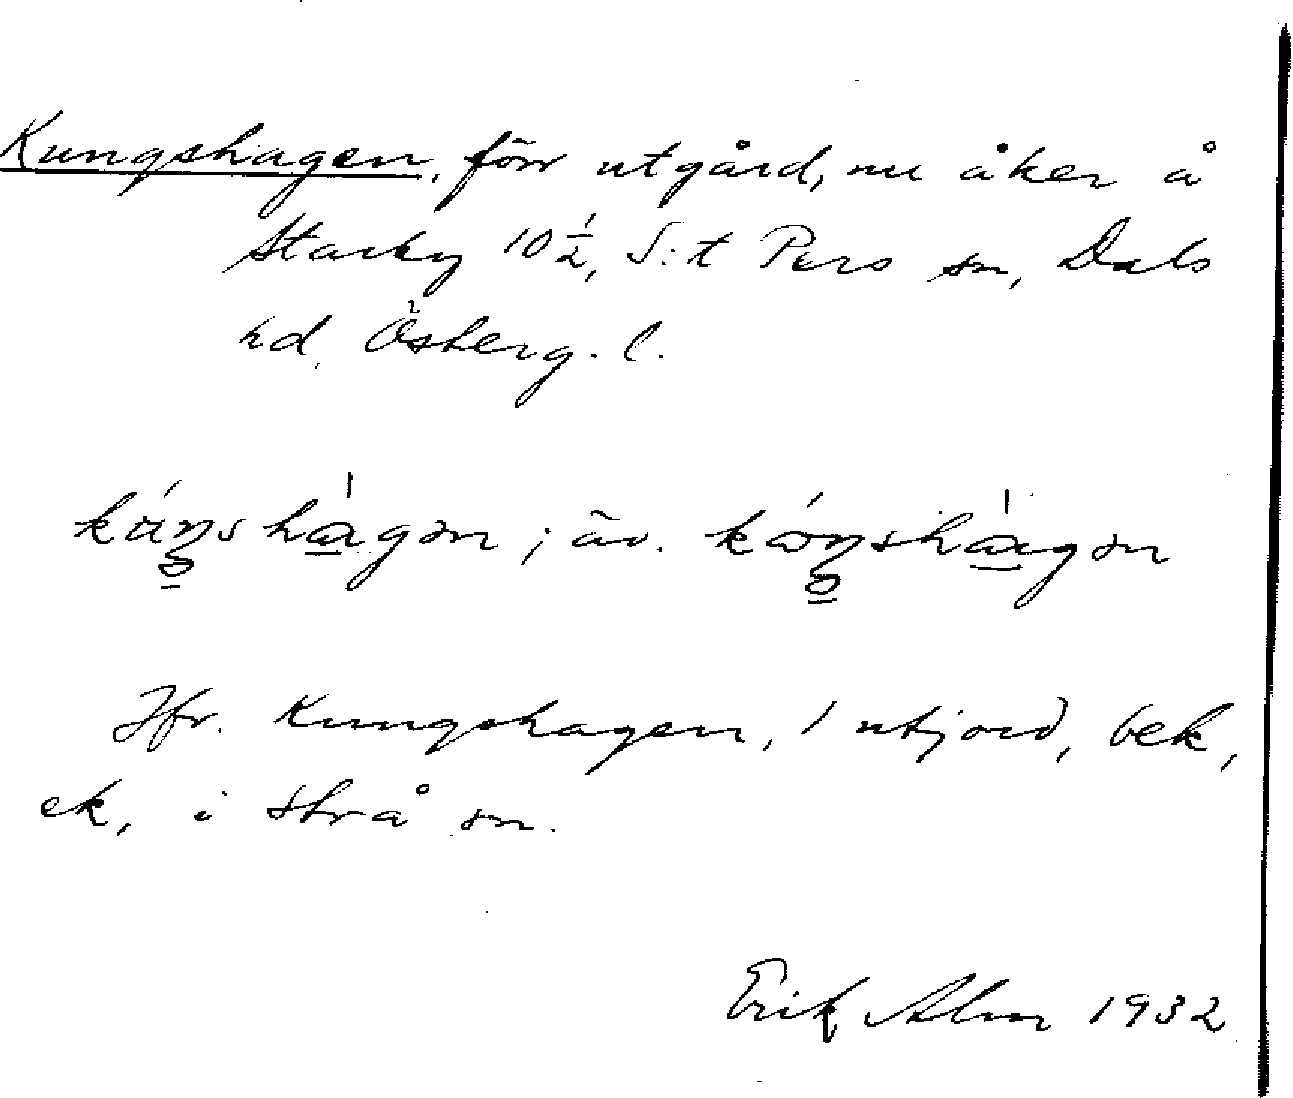 Kungshagen, förr utgård, nu åker å
Starby 10 ½, S:t Pers sn, Dals
hd, Österg. l.
kuŋshagən; äv. kωŋshagən
Jfr. Kungshagen, 1 utjord, bek,
ek, i Strå sn.
Erik Alm 1932